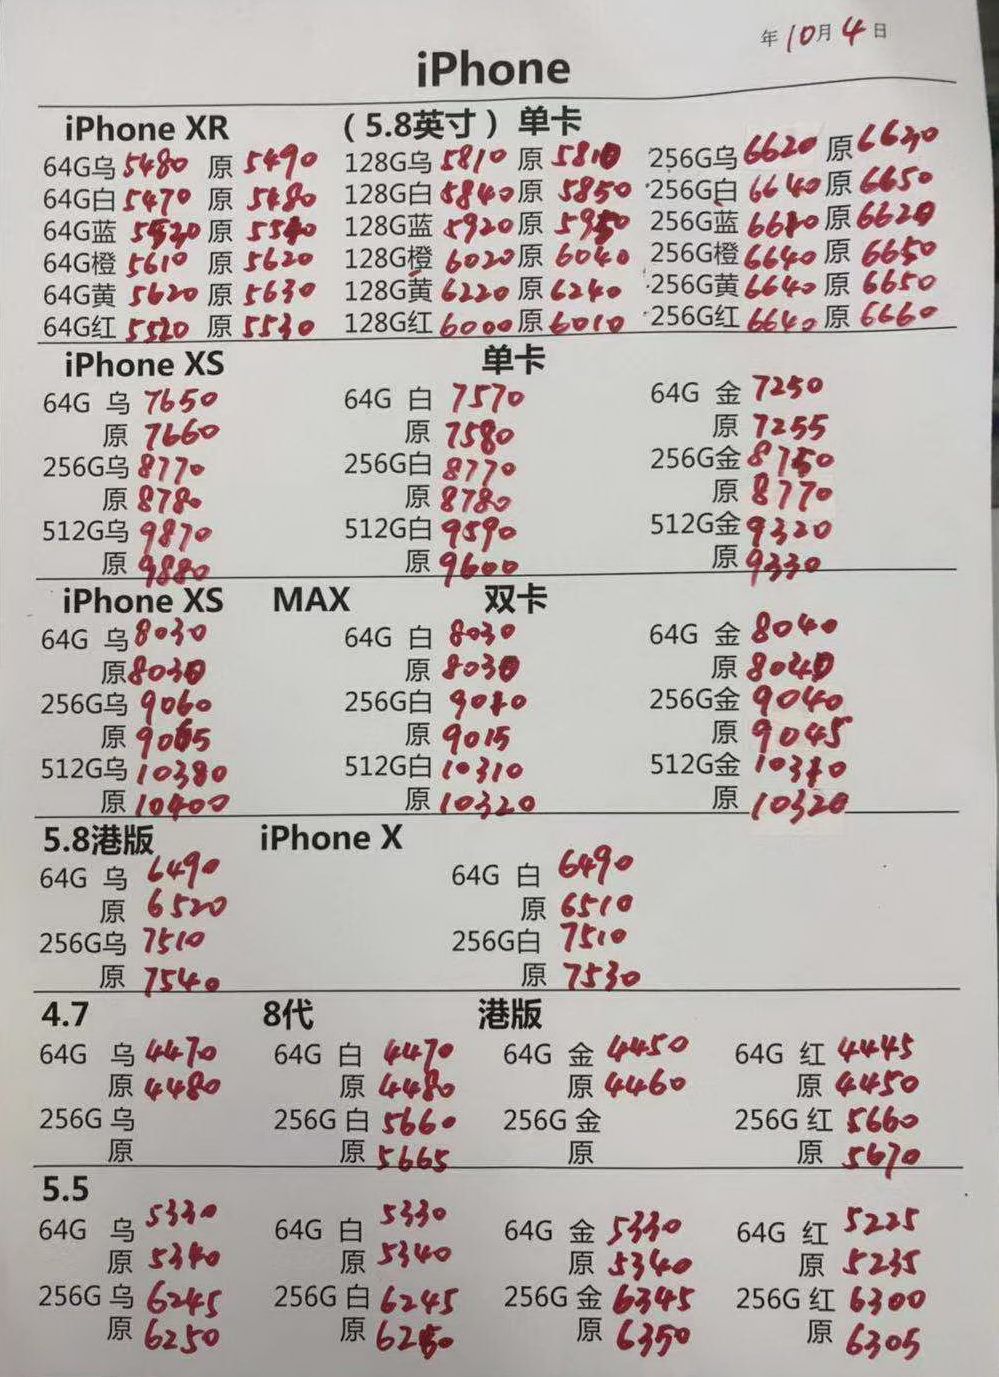 年10月4日
iPhone
iPhone XR （5.8英寸）单卡
64G乌 5480 原 5490 128G乌 5810 原 5810 256G乌 6620 原 6630
64G白 5470 原 5480 128G白 5840 原 5850 256G白 6640 原 6650
64G蓝 原 128G蓝 5920 原 256G蓝 原 6620
64G橙 5610 原 5620 128G橙 6020 原 6040 256G橙 6640 原 6650
64G黄 5620 原 5630 128G黄 6220 原 6240 256G黄 6640 原 6650
64G红 5520 原 5530 128G红 6000 原 6010 256G红 6640 原 6660
iPhone XS 单卡
64G 乌 7650 64G 白 7570 64G 金 7250
原 7660 原 7580 原 7255
256G乌 8770 256G白 8770 256G金 8750
原 8780 原 8780 原 8770
512G乌 9870 512G白 9590 512G金 9320
原 9880 原 9600 原 9330
iPhone XS MAX 双卡
64G 乌 8030 64G 白 8030 64G 金 8040
原 8030 原 8030 原 8040
256G乌 9060 256G白 9010 256G金 9040
原 9065 原 9015 原 9045
512G乌 10380 512G白 10310 512G金 10310
原 10400 原 10320 原 10320
5.8港版 iPhone X
64G 乌 6490 64G 白 6490
原 6520 原 6510
256G乌 7510 256G白 7510
原 7540 原 7530
4.7 8代 港版
64G 乌 4470 64G 白 4470 64G 金 4450 64G 红 4445
原 4480 原 4480 原 4460 原 4450
256G 乌 256G 白 5660 256G 金 256G 红 5660
原 原 5665 原 原 5670
5.5
64G 乌 5330 64G 白 5330 64G 金 5330 64G 红 5225
原 5340 原 5340 原 5340 原 5235
256G 乌 6245 256G 白 6245 256G 金 6345 256G 红 6300
原 6250 原 6250 原 6350 原 6305